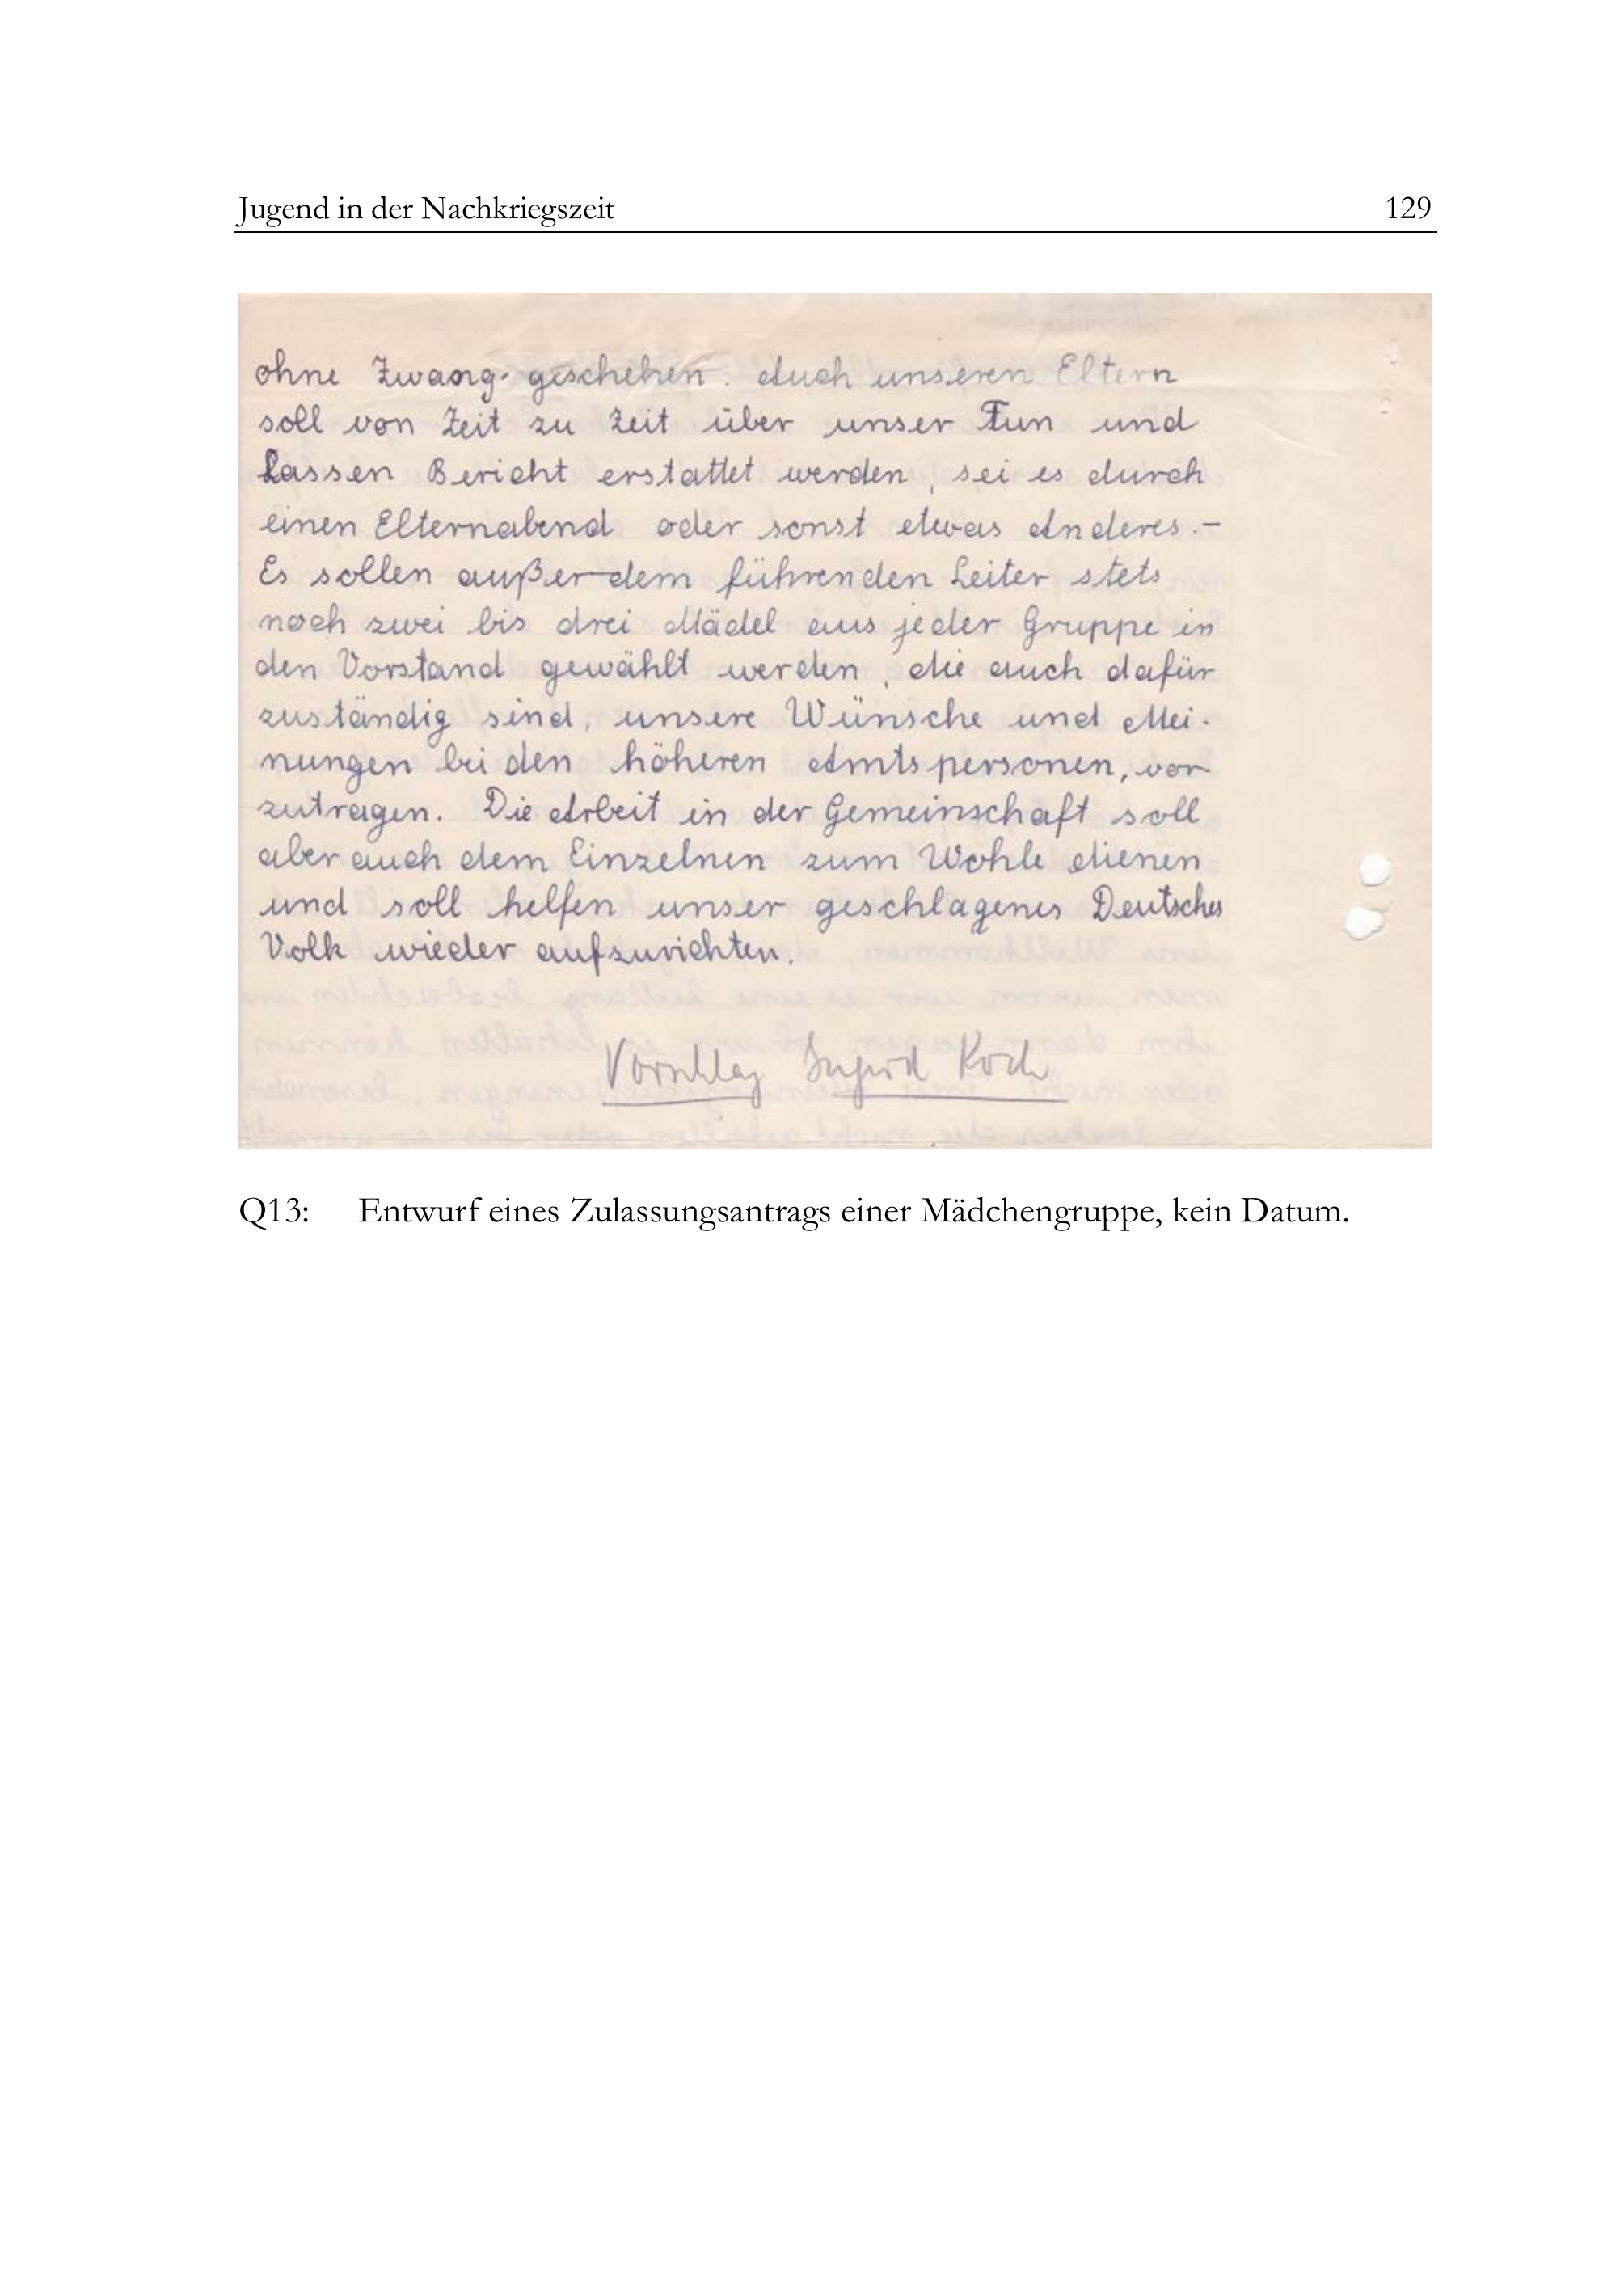 Jugend in der Nachkriegszeit 129
ohne Zwang geschehen. Auch unseren Eltern
soll von Zeit zu Zeit über unser Tun und
Lassen Bericht erstattet werden, sei es durch
einen Elternabend oder sonst etwas Anderes.-
Es sollen außer dem führenden Leiter stets
noch zwei bis drei Mädel aus jeder Gruppe in
den Vorstand gewählt werden, die auch dafür
zuständig sind, unsere Wünsche und Mei-
nungen bei den höheren Amtspersonen, vor
zutragen. Die Arbeit in der Gemeinschaft soll
aber auch dem Einzelnen zum Wohle dienen
und soll helfen unser geschlagenes Deutsches
Volk wieder aufzurichten.
Vorschlag Ingrid Koch
Q13: Entwurf eines Zulassungsantrags einer Mädchengruppe, kein Datum.